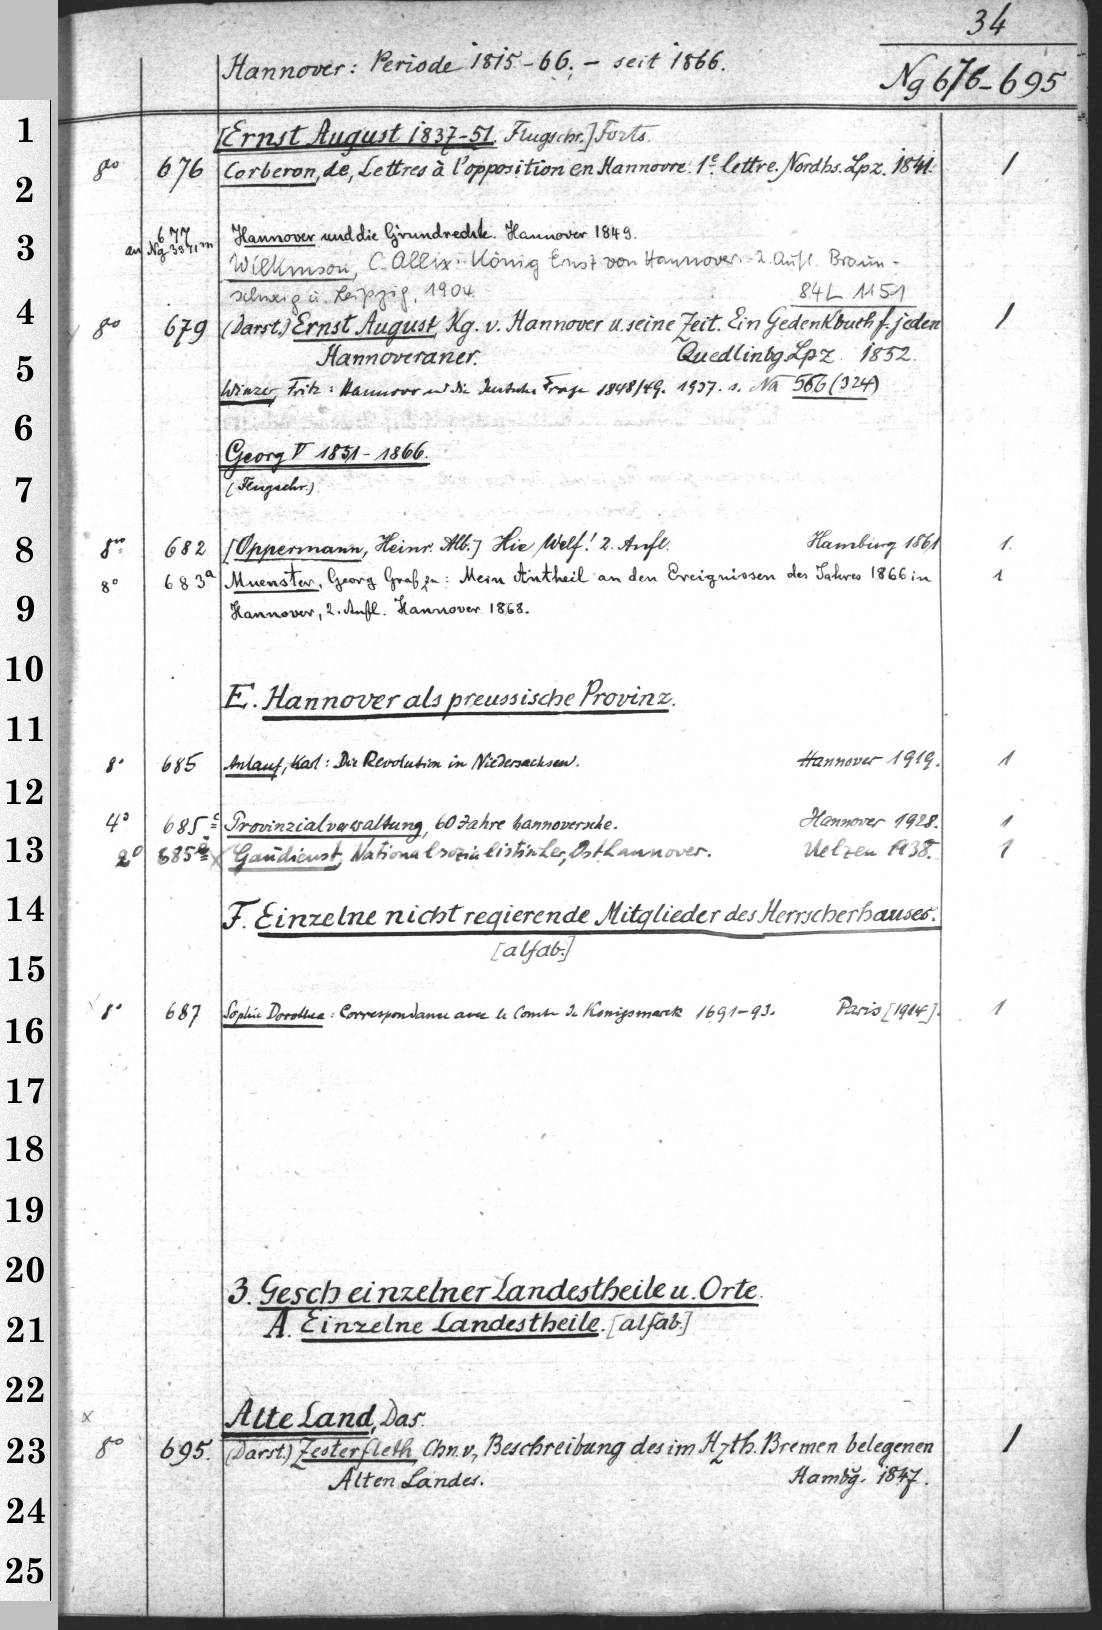 34
Hannover: Periode 1815-66. - seit 1866.
Ng 676-695
1
[Ernst August 1837-51. Flugschr.] Forts.
8º 676 Corberon, de, Lettres à l'opposition en Hannovre. 1e lettre. Nordhs. Lpz. 1841. 1
2
677
an Ng 3571m Hannover und die Grundrechte. Hannover 1849.
3
Wilkinson, C. Allix: König Ernst von Hannover. 2. Aufl. Braun-
schweig u. Leipzig, 1904 84 L 1151
4
8º 679 (Darst.) Ernst August, Kg. v. Hannover u. seine Zeit. Ein Gedenkbuch f. jeden 1
Hannoveraner. Quedlinbg Lpz. 1852.
5
Winzer, Fritz: Hannover und die deutsche Frage 1848/49. 1937. s. Na 566 (324)
6
Georg V 1851-1866.
7
(Flugschr.)
8
8º 682 [Oppermann, Heinr. Alb.] Hie Welf! 2. Aufl. Hamburg 1861 1.
8º 683a Muenster, Georg Graf zu: Mein Antheil an den Ereignissen des Jahres 1866 in 1
9
Hannover, 2. Aufl. Hannover 1868.
10
E. Hannover als preussische Provinz.
11
8º 685 Anlauf, Karl: Die Revolution in Niedersachsen. Hannover 1919. 1
12
4º 685c Provinzialverwaltung, 60 Jahre hannoversche. Hannover 1928. 1
13
2º 685 x Gaudienst, Nationalsozialistischer, Osthannover. Uelzen 1938. 1
14
F. Einzelne nicht regierende Mitglieder des Herrscherhauses.
[alfab.]
15
8º 687 Sophie Dorothea: Correspondance avec le Comte de Königsmarck 1691-93. Paris [1914]. 1
16
17
18
19
20
3. Gesch einzelner Landestheile u. Orte.
21
A. Einzelne Landestheile. [alfab.]
22
x Alte Land, Das.
23
8º 695. (Darst.) Zesterfleth, Chn. v., Beschreibung des im Hzth. Bremen belegenen 1
Alten Landes. Hambg. 1847.
24
25